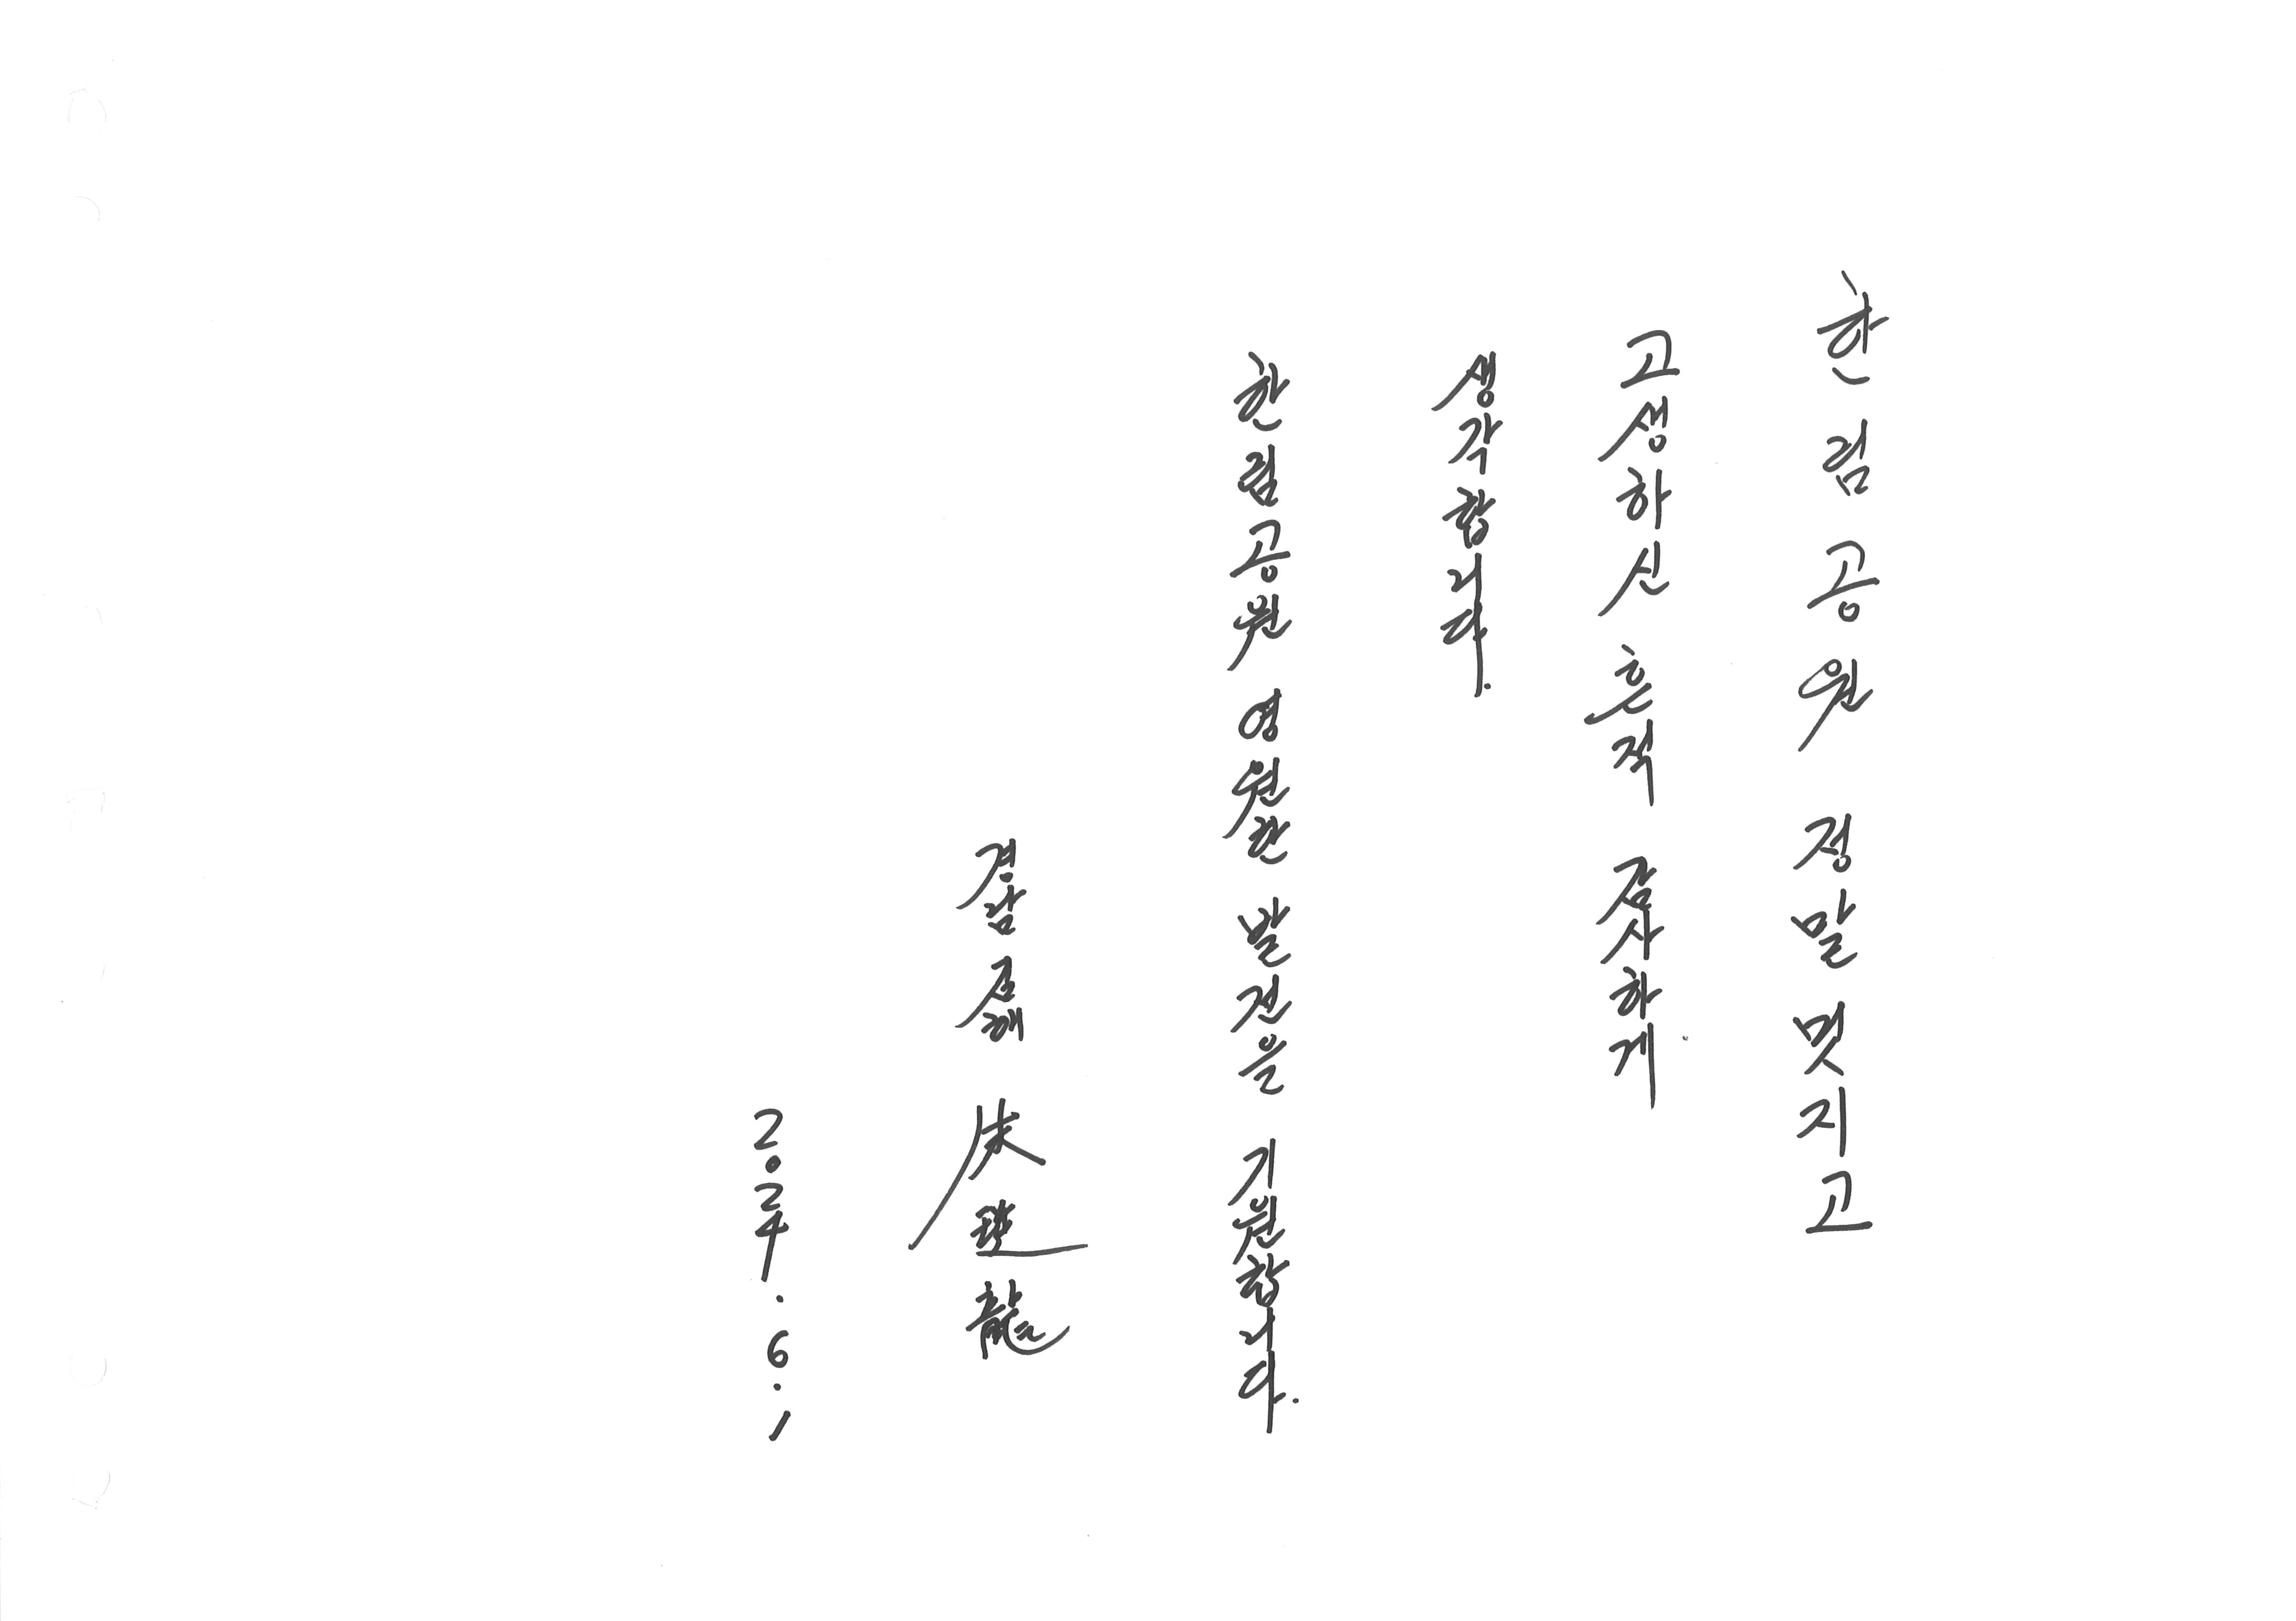 한림공원 정말 멋지고
고생하신 흔적 감사하게
생각합니다.
한림공원 영원한 발전을 기원합니다.
경남 김해
2024. 6. 1